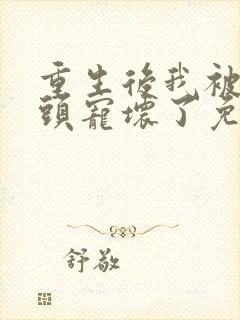 重生後我被
頭寵壞了免
舒敬